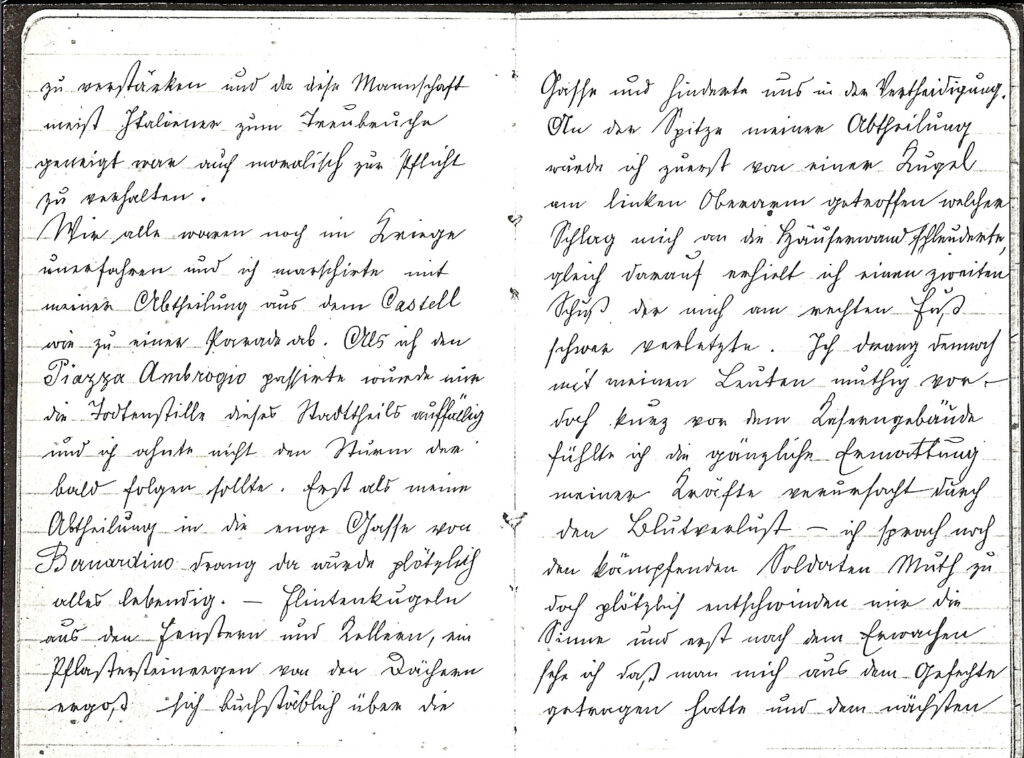 zu verstärken und da diese Mannschaft
meist Italiener zum Treubruche
geneigt war auch moralisch zur Pflicht
zu verhalten.
Wir alle waren noch im Kriege
unerfahren und ich marschirte mit
meiner Abtheilung aus dem Castell
wie zu einer Parade ab. Als ich den
Piazza Ambrogio passirte wurde mir
die Todtenstille dieses Stadttheils auffällig
und ich ahnte nicht den Sturm der
bald folgen sollte. Erst als meine
Abtheilung in die enge Gasse von
Bernardino drang da wurde plötzlich
alles lebendig. — Flintenkugeln
aus den Fenstern und Kellern, ein
Pflastersteinregen von den Dächern
ergoß sich buchstäblich über die
Gasse und hinderte uns in der Vertheidigung.
An der Spitze meiner Abtheilung
wurde ich zuerst von einer Kugel
am linken Oberarm getroffen welcher
Schlag mich an die Häuserwand schleuderte,
gleich darauf erhielt ich einen zweiten
Schuß der mich am rechten Fuß
schwer verletzte. Ich drang dennoch
mit meinen Leuten muthig vor –
doch kurz vor dem Kaserngebäude
fühlte ich die gänzliche Ermattung
meiner Kräfte verursacht durch
den Blutverlust — ich sprach noch
den kämpfenden Soldaten Muth zu
doch plötzlich entschwinden mir die
Sinne und erst nach dem Erwachen
sehe ich daß man mich aus dem Gefechte
getragen hatte und dem nächsten